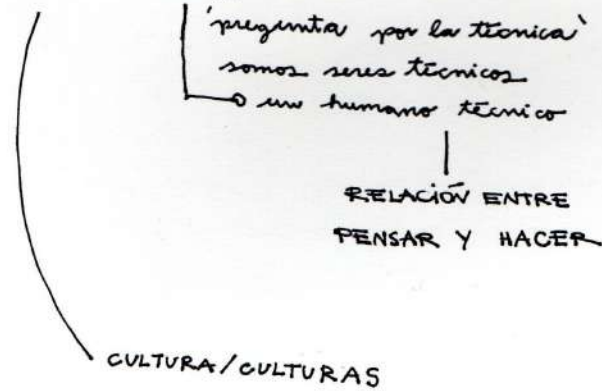 'pregunta por la técnica'
somos seres técnicos
un humano técnico
RELACIÓN ENTRE
PENSAR Y HACER
CULTURA/CULTURAS